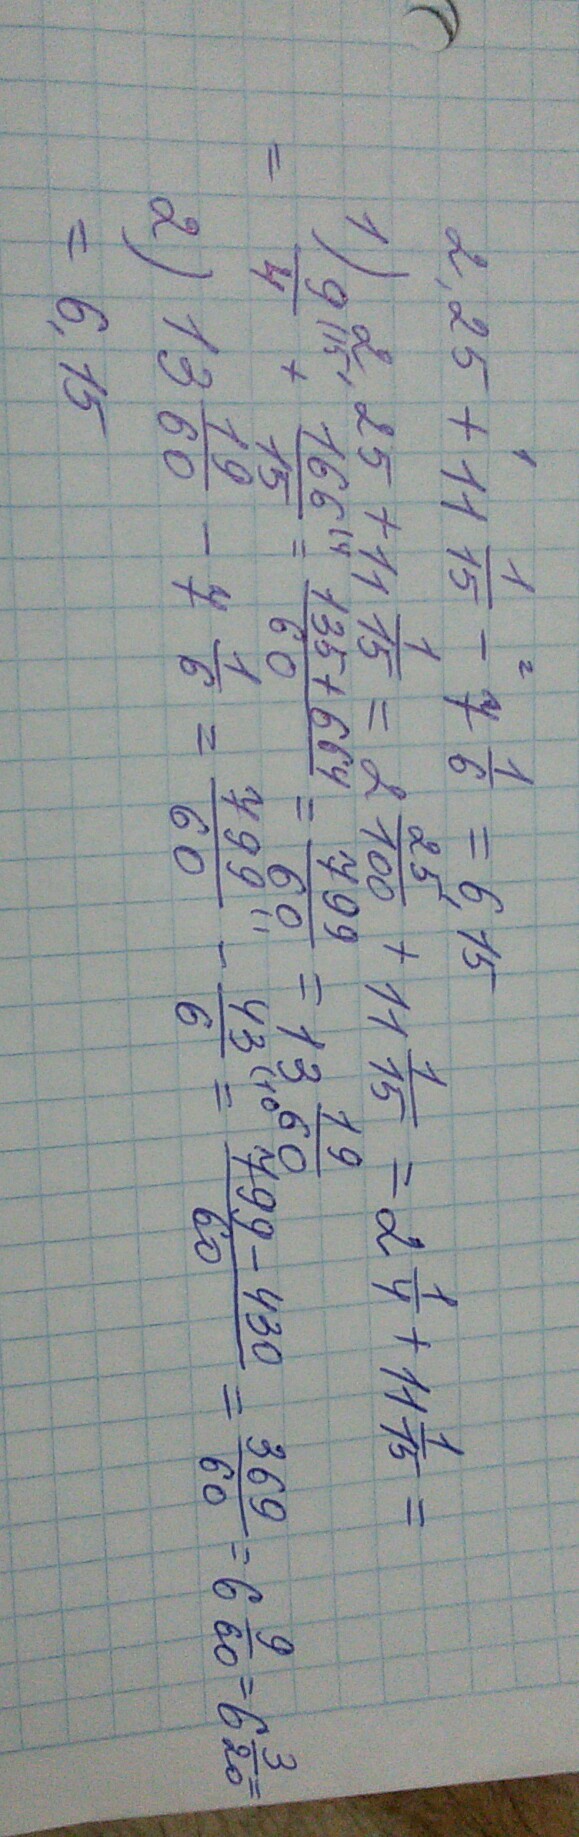 2,25 + 11 1/15 - 7 1/6 = 6,15
1) 2,25 + 11 1/15 = 2 25/100 + 11 1/15 = 2 1/4 + 11 1/15 =
= 9/4 (15 + 166/15 (4 = 135+664/60 = 799/60 = 13 19/60
2) 13 19/60 - 7 1/6 = 799/60 (1 - 43/6 (10 = 799-430/60 = 369/60 = 6 9/60 = 6 3/20 =
= 6,15